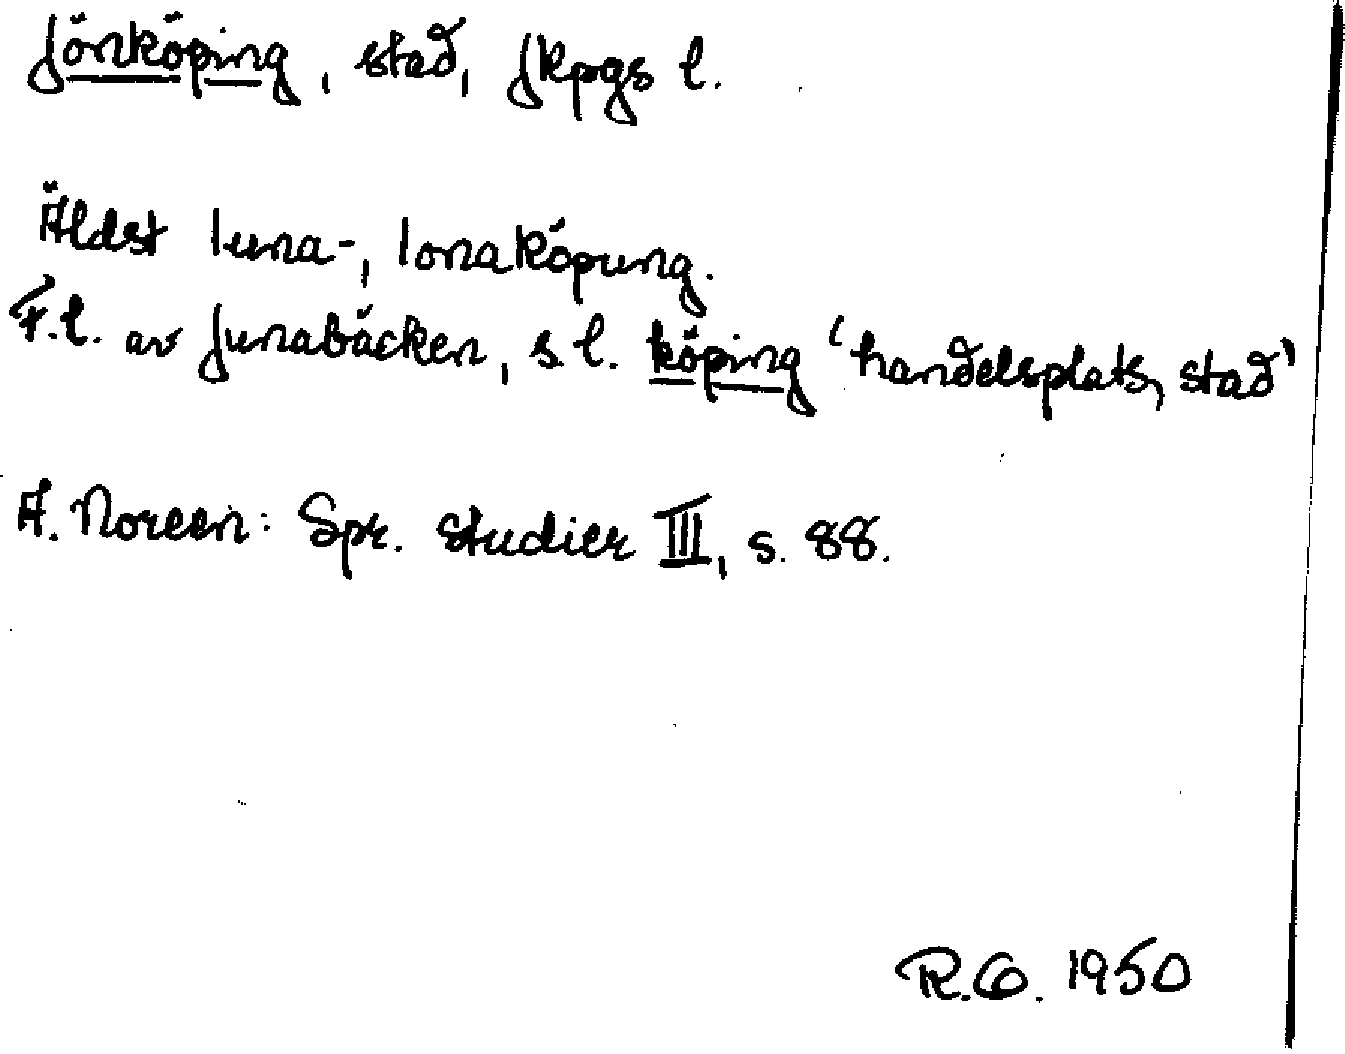 Jönköping, stad, Jkpgs l.
Äldst Iuna-, Ionaköpung.
F.l. av Junabäcken, s l. köping 'handelsplats, stad'
A. Noreen: Spr. studier III, s. 88.
R.G. 1950